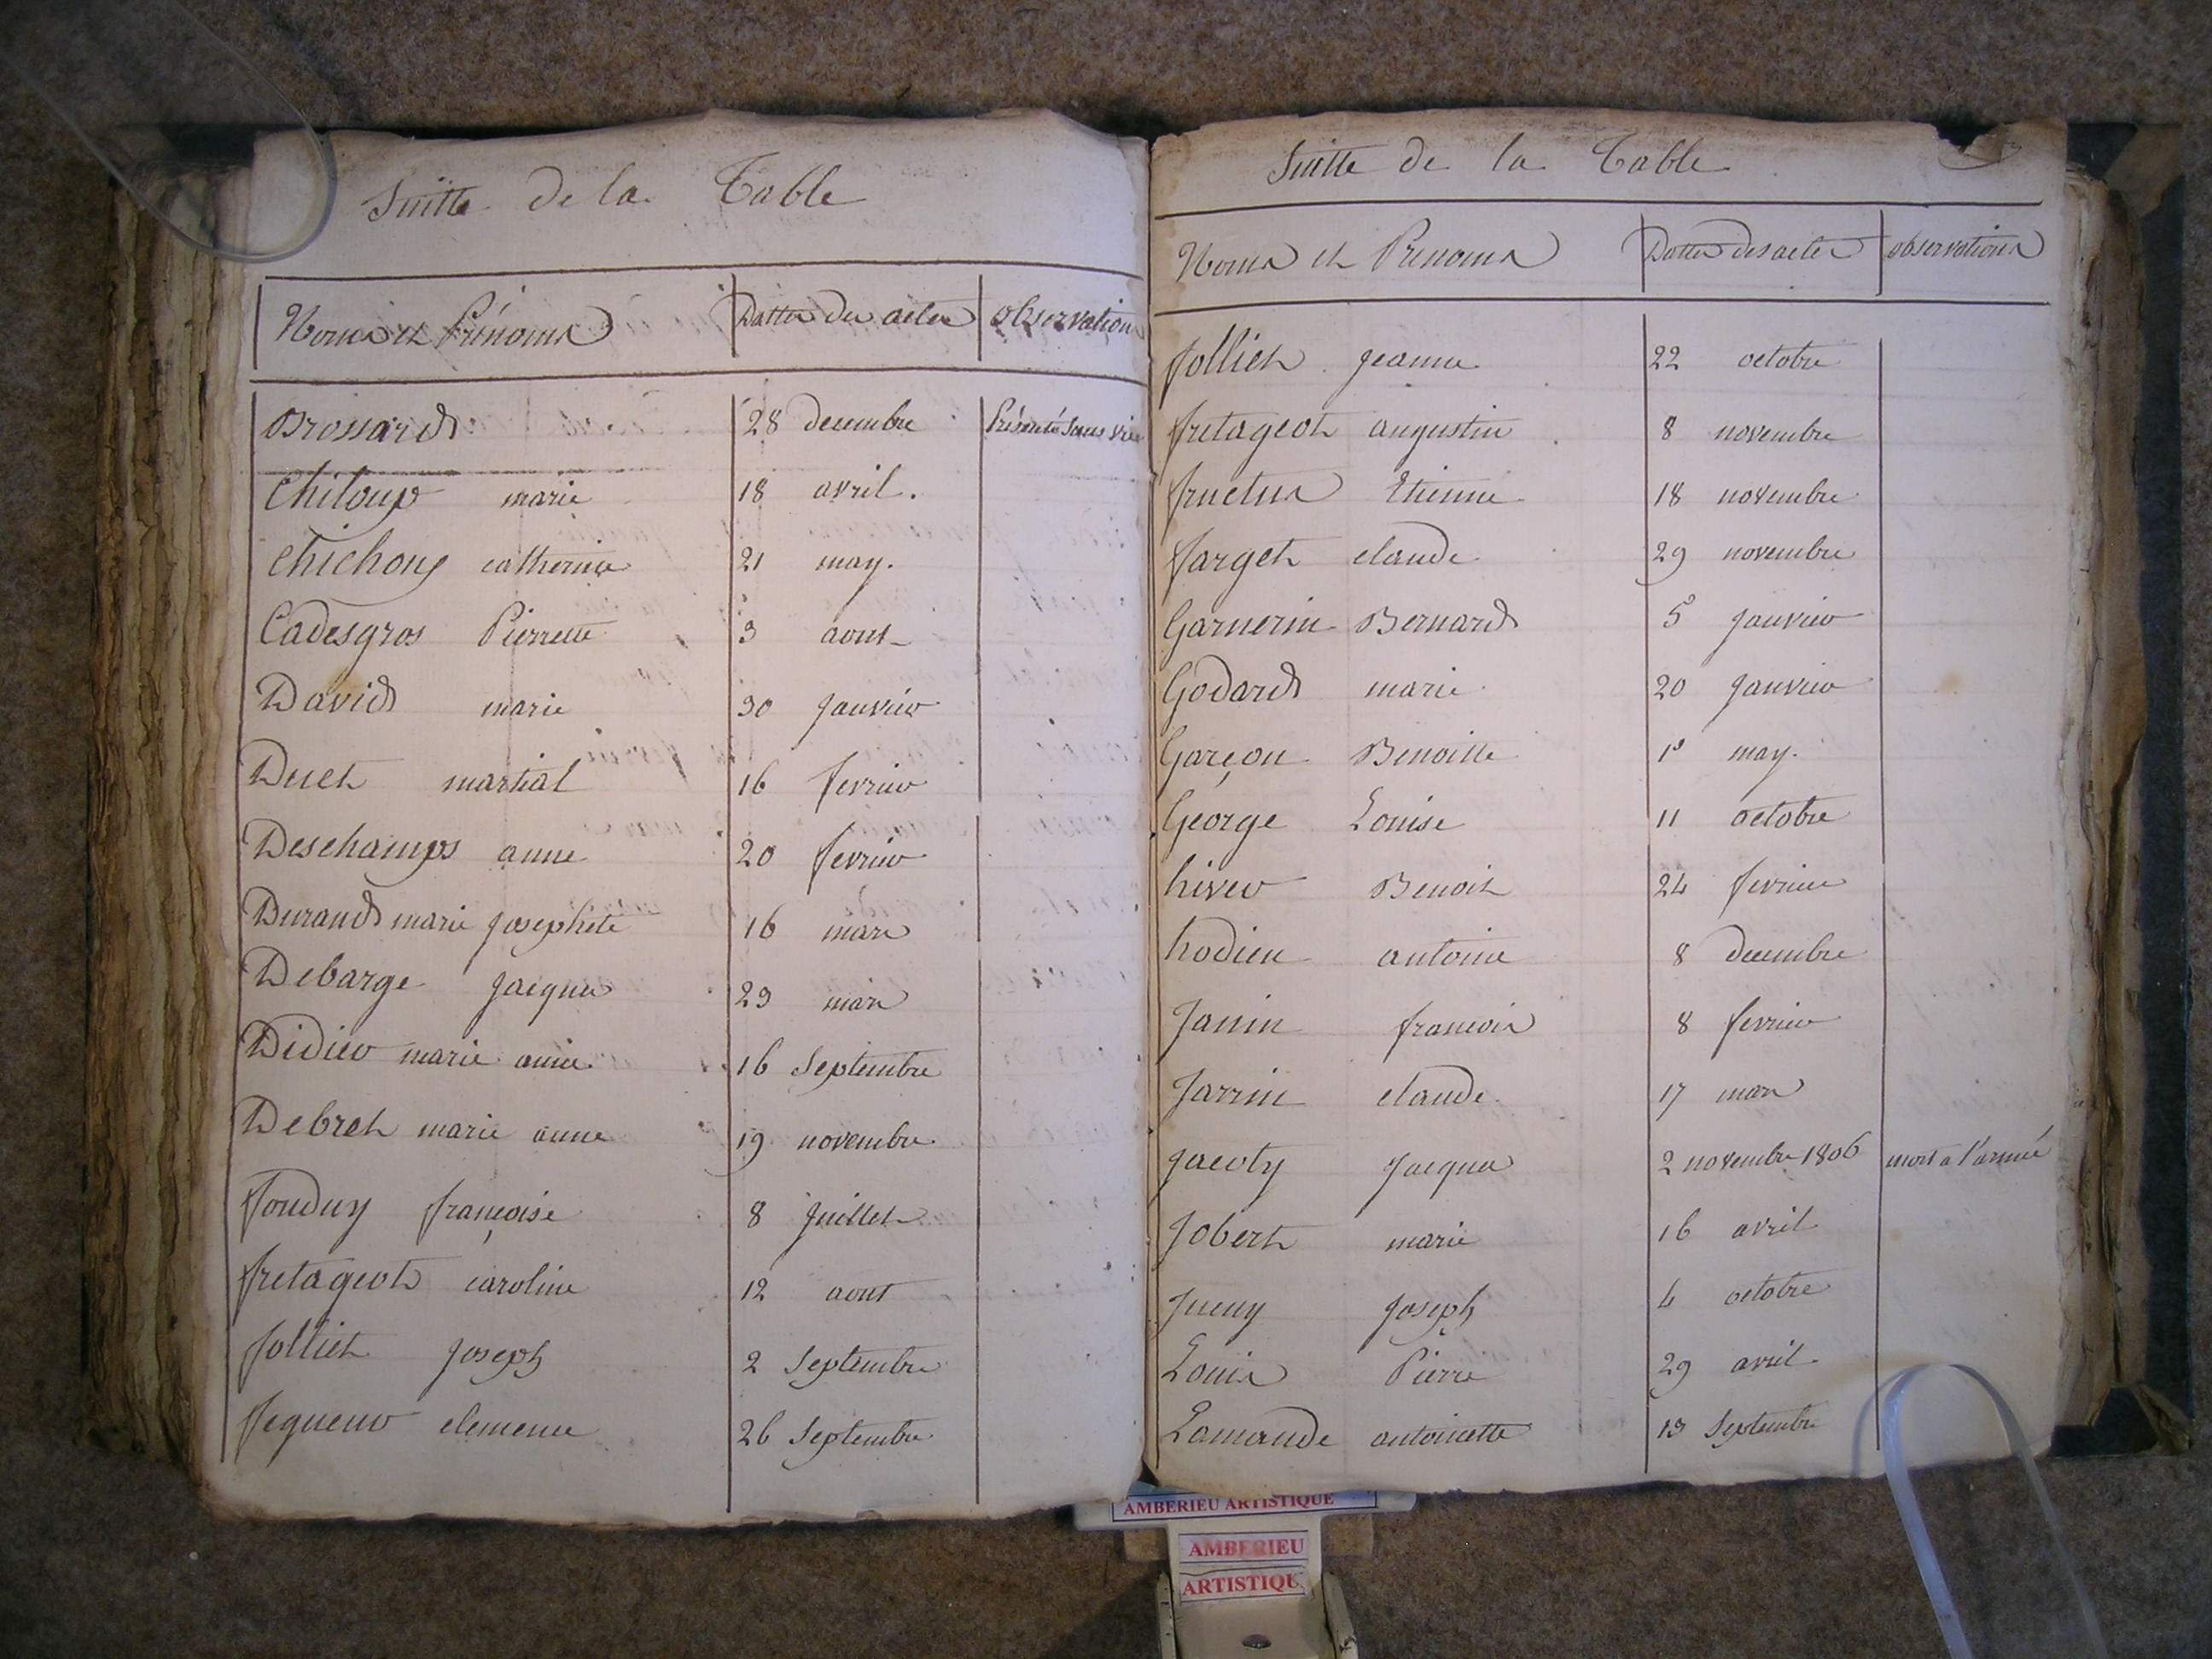 Suitte de la Table
Noms et Prénoms Dattes des actes observations
Brossard 28 decembre Présenté sans vie
Chiloup marie 18 avril.
Chichoux catherine 21 may.
Cadesgros Pierrette 3 aout
David marie 30 janvier
Duet martial 16 fevrier
Deschamps anne 20 fevrier
Durand marie josephete 16 mars
Debarge jacques 23 mars
Didier marie anne 16 septembre
Debret marie anne 19 novembre
françoise 8 juillet
fretageot caroline 12 aout
folliet joseph 2 septembre
fequeur clemence 26 septembre
Suitte de la Table
Noms et Prenoms Dattes des actes observations
folliet jeanne 22 octobre
fretageot augustin 8 novembre
fructus Etienne 18 novembre
farget claude 29 novembre
Garnerin Bernard 5 janvier
Godard marie 20 janvier
Garçon Benoitte 1er may.
George Louise 11 octobre
hiver Benoit 24 fevrier
hodieu antoine 8 decembre
Janin francois 8 fevrier
Jarrin claude 17 mars
jacoty jacques 2 novembre 1806 mort a l'armée
Jobert marie 16 avril
joseph 4 octobre
Louis Pierre 29 avril
Lamande antoinette 13 septembre
AMBERIEU ARTISTIQUE
AMBERIEU
ARTISTIQU